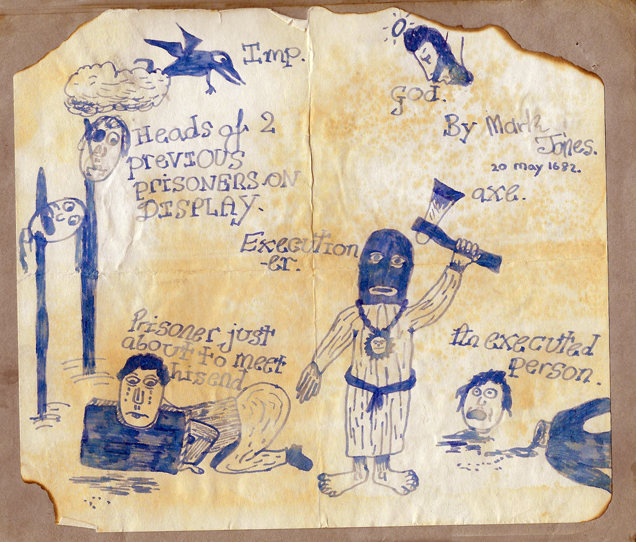 Imp.
God.
By Mark
Jones.
20 may 1682.
Heads of 2
previous
prisoners on
Display.
axe.
Execution
-er.
Prisoner just
about to meet
his end
An executed
person.